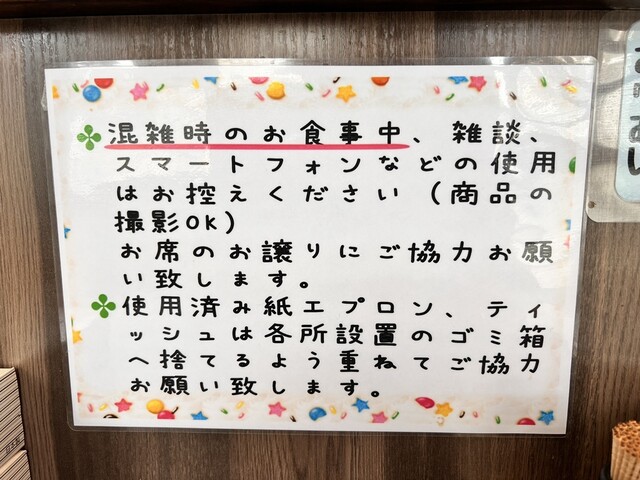 混雑時のお食事中、雑談、
スマートフォンなどの使用
はお控えください（商品の
撮影OK）
お席のお譲りにご協力お願
い致します。
使用済み紙エプロン、ティ
ッシュは各所設置のゴミ箱
へ捨てるよう重ねてご協力
お願い致します。